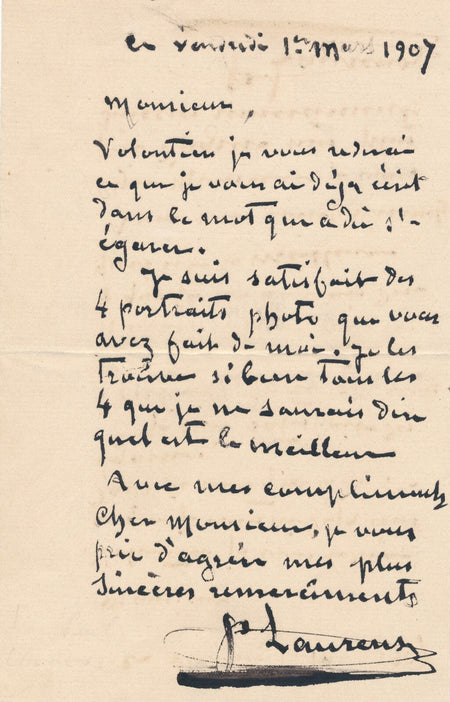 ce vendredi 1er Mars 1907
Monsieur,
Volontiers je vous redirai
ce que je vous ai déja écrit
dans le mot que a dû s'-
égarer.
Je suis satisfait des
4 portraits photo que vous
avez fait de moi. Je les
trouve si bien tous les
4 que je ne saurais dire
quel est le meilleur
Avec mes compliments
Cher Monsieur, je vous
prie d'agréer mes plus
sincères remerciments
Laurens